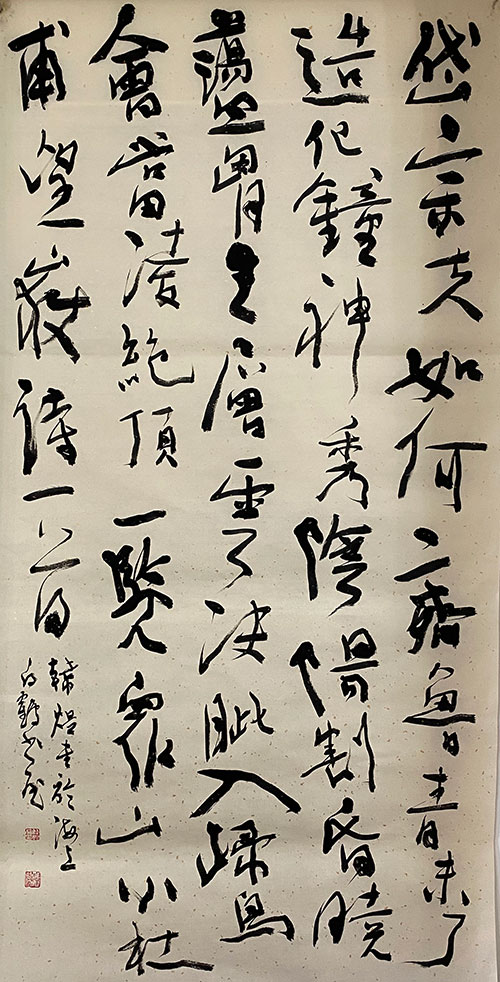 岱宗夫如何齊魯青未了
造化鐘神秀陰陽割昏曉
蘯胷生層雲決眦入歸鳥
會當凌絕頂一覽眾山小杜
甫望嶽詩一首
韓煜書於海上
白鶴書屋